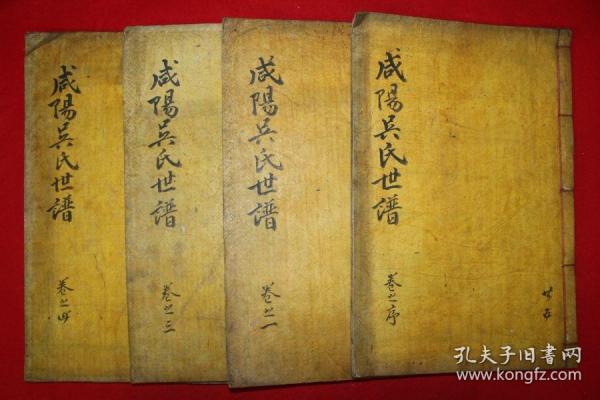 咸陽吳氏世譜
卷之序
共五
咸陽吳氏世譜
卷之一
咸陽吳氏世譜
卷之三
咸陽吳氏世譜
卷之四
孔夫子旧书网
www.kongfz.com